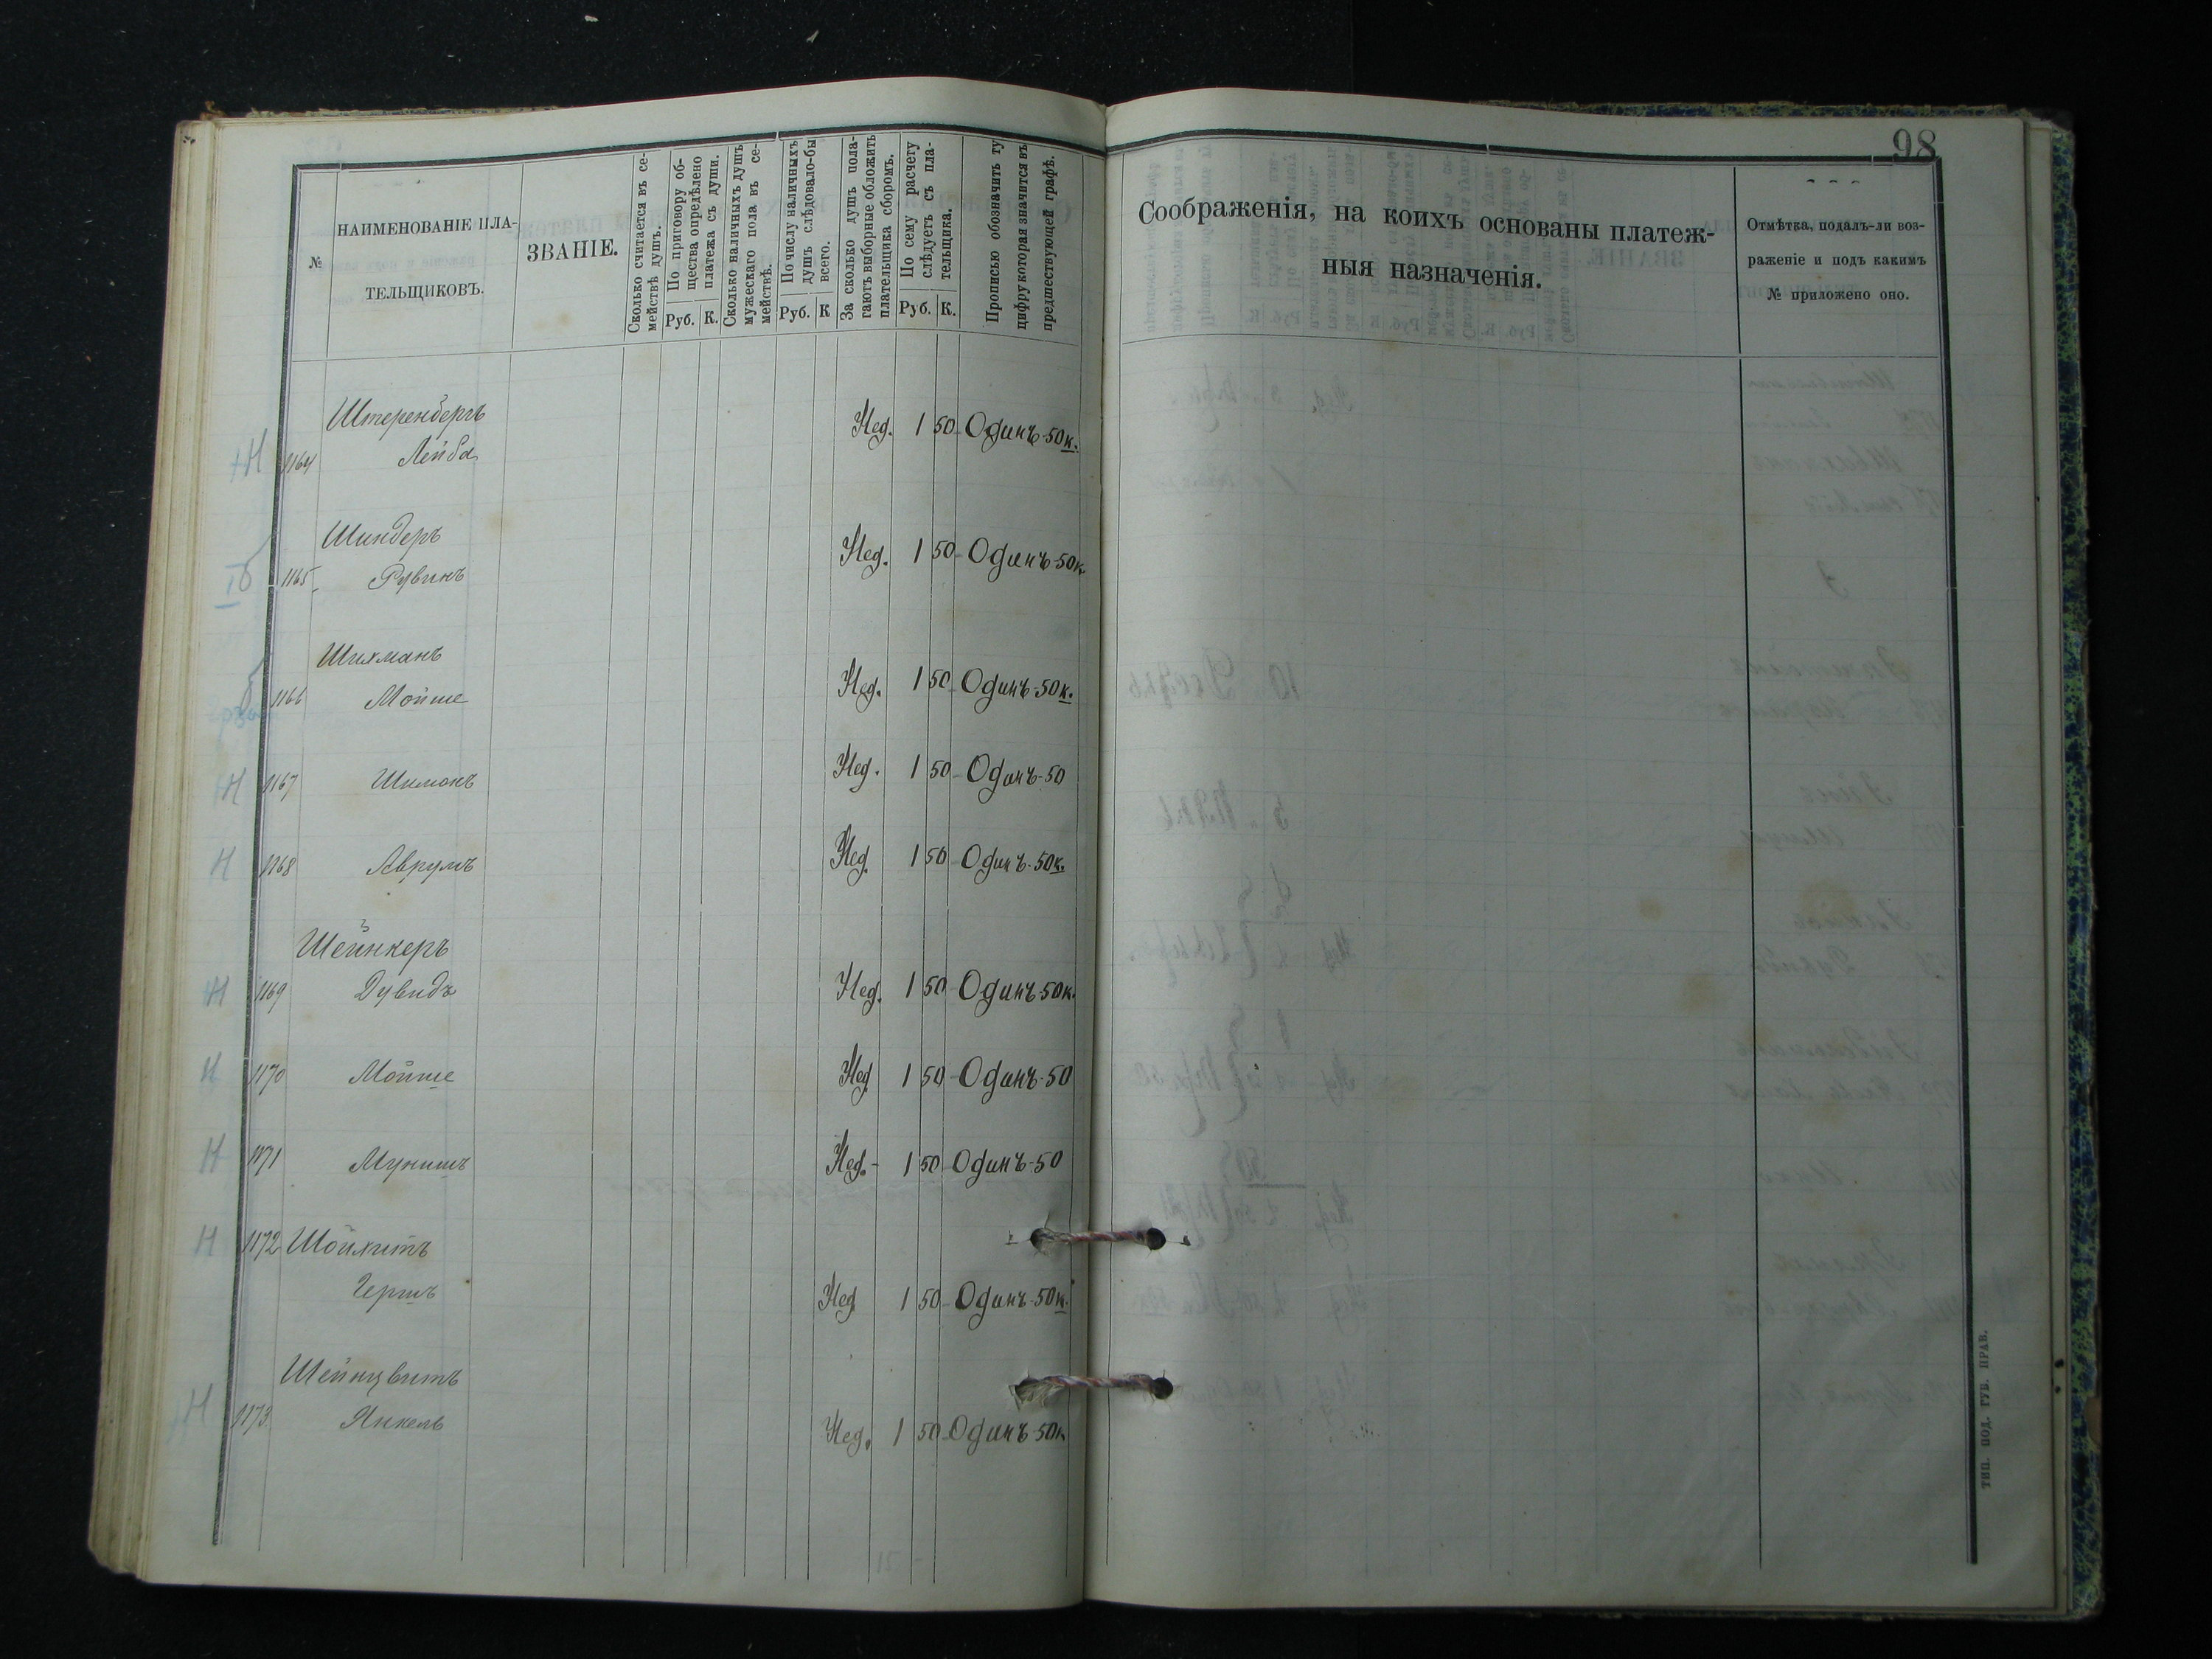 98
№
НАИМЕНОВАНІЕ ПЛА-
ТЕЛЬЩИКОВЪ.
ЗВАНІЕ.
Сколько считается въ се-
мействѣ душъ.
По приговору об-
щества опредѣлено
платежа съ души.
Руб. К.
Сколько наличныхъ душъ
мужескаго пола въ се-
мействѣ.
По числу наличныхъ
душъ слѣдовало-бы
всего.
Руб. К
За сколько душъ пола-
гаютъ выборные обложить
плательщика сборомъ.
По сему расчету
слѣдуетъ съ пла-
тельщика.
Руб. К.
Прописью обозначить ту
цифру которая значится въ
предшествующей графѣ.
Соображенія, на коихъ основаны платеж-
ныя назначенія.
Отмѣтка, подалъ-ли воз-
раженіе и подъ какимъ
№ приложено оно.
Штеренбергъ
Н 1164 Лейба Нед. 1 50 Одинъ-50к.
Шиндеръ
1165 Рувинъ Нед. 1 50 Одинъ-50к.
Шихманъ
1166 Мойше Нед. 1 50 Одинъ-50к.
Н 1167 Шимонъ Нед. 1 50 Одинъ-50
Н 1168 Аврумъ Нед. 1 50 Одинъ-50к.
Шейнкеръ
Н 1169 Дувидъ Нед. 1 50 Одинъ-50к.
Н 1170 Мойше Нед 1 50 Одинъ-50
Н 1171 Мунишъ Нед.- 1 50 Одинъ-50
Н 1172 Шойхитъ
Гершъ Нед 1 50 Одинъ-50к.
Шейнцвитъ
Н 1173 Янкель Нед. 1 50 Одинъ-50к
ТИП. ПОД. ГУБ. ПРАВ.